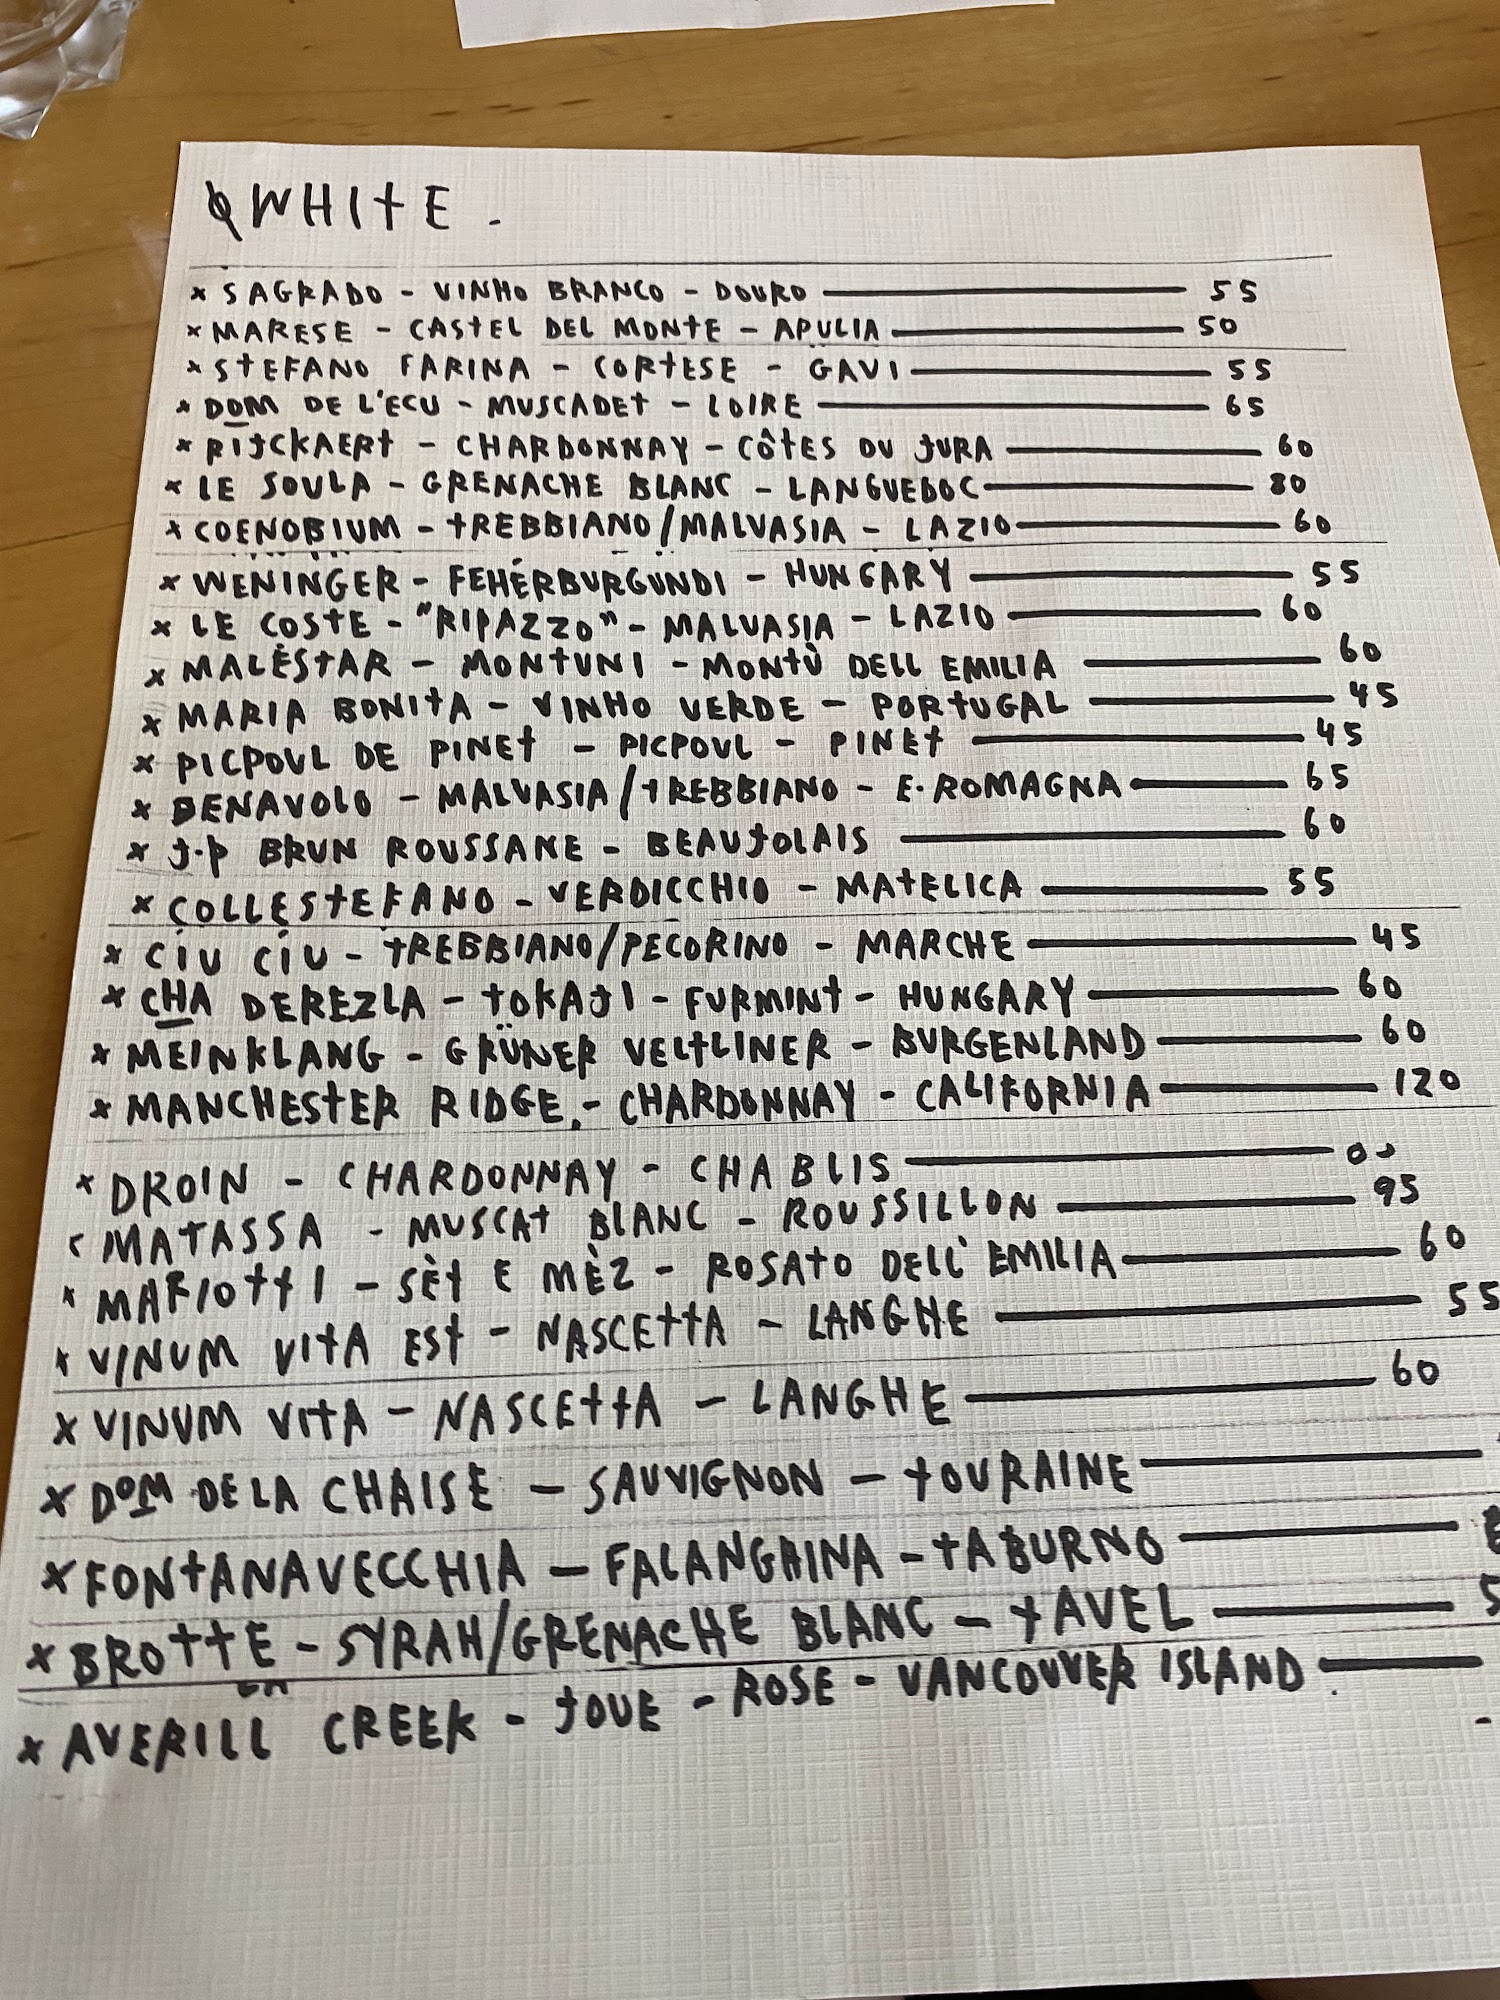 WHITE.
x SAGRADO - VINHO BRANCO - DOURO 55
x MARESE - CASTEL DEL MONTE - APULIA 50
x STEFANO FARINA - CORTESE - GAVI 55
x DOM DE L'ECU - MUSCADET - LOIRE 65
x RIJCKAERT - CHARDONNAY - CÔTES DU JURA 60
x LE SOULA - GRENACHE BLANC - LANGUEDOC 80
x COENOBIUM - TREBBIANO/MALVASIA - LAZIO 60
x WENINGER - FEHÉRBURGUNDI - HUNGARY 55
x LE COSTE - "RIPAZZO" - MALVASIA - LAZIO 60
x MALÈSTAR - MONTUNI - MONTÙ DELL EMILIA 60
x MARIA BONITA - VINHO VERDE - PORTUGAL 45
x PICPOUL DE PINET - PICPOUL - PINET 45
x DENAVOLO - MALVASIA/TREBBIANO - E. ROMAGNA 65
x J.P BRUN ROUSSANE - BEAUJOLAIS 60
x COLLESTEFANO - VERDICCHIO - MATELICA 55
x CIU CIU - TREBBIANO/PECORINO - MARCHE 45
x CHA DEREZLA - TOKAJI - FURMINT - HUNGARY 60
x MEINKLANG - GRÜNER VELTLINER - BURGENLAND 60
x MANCHESTER RIDGE - CHARDONNAY - CALIFORNIA 120
x DROIN - CHARDONNAY - CHABLIS
x MATASSA - MUSCAT BLANC - ROUSSILLON 95
x MARIOTTI - SÈT E MÈZ - ROSATO DELL'EMILIA 60
x VINUM VITA EST - NASCETTA - LANGHE 55
x VINUM VITA - NASCETTA - LANGHE 60
x DOM DE LA CHAISE - SAUVIGNON - TOURAINE
x FONTANAVECCHIA - FALANGHINA - TABURNO
x BROTTE - SYRAH/GRENACHE BLANC - TAVEL 5
x AVERILL CREEK - JOUE - ROSE - VANCOUVER ISLAND